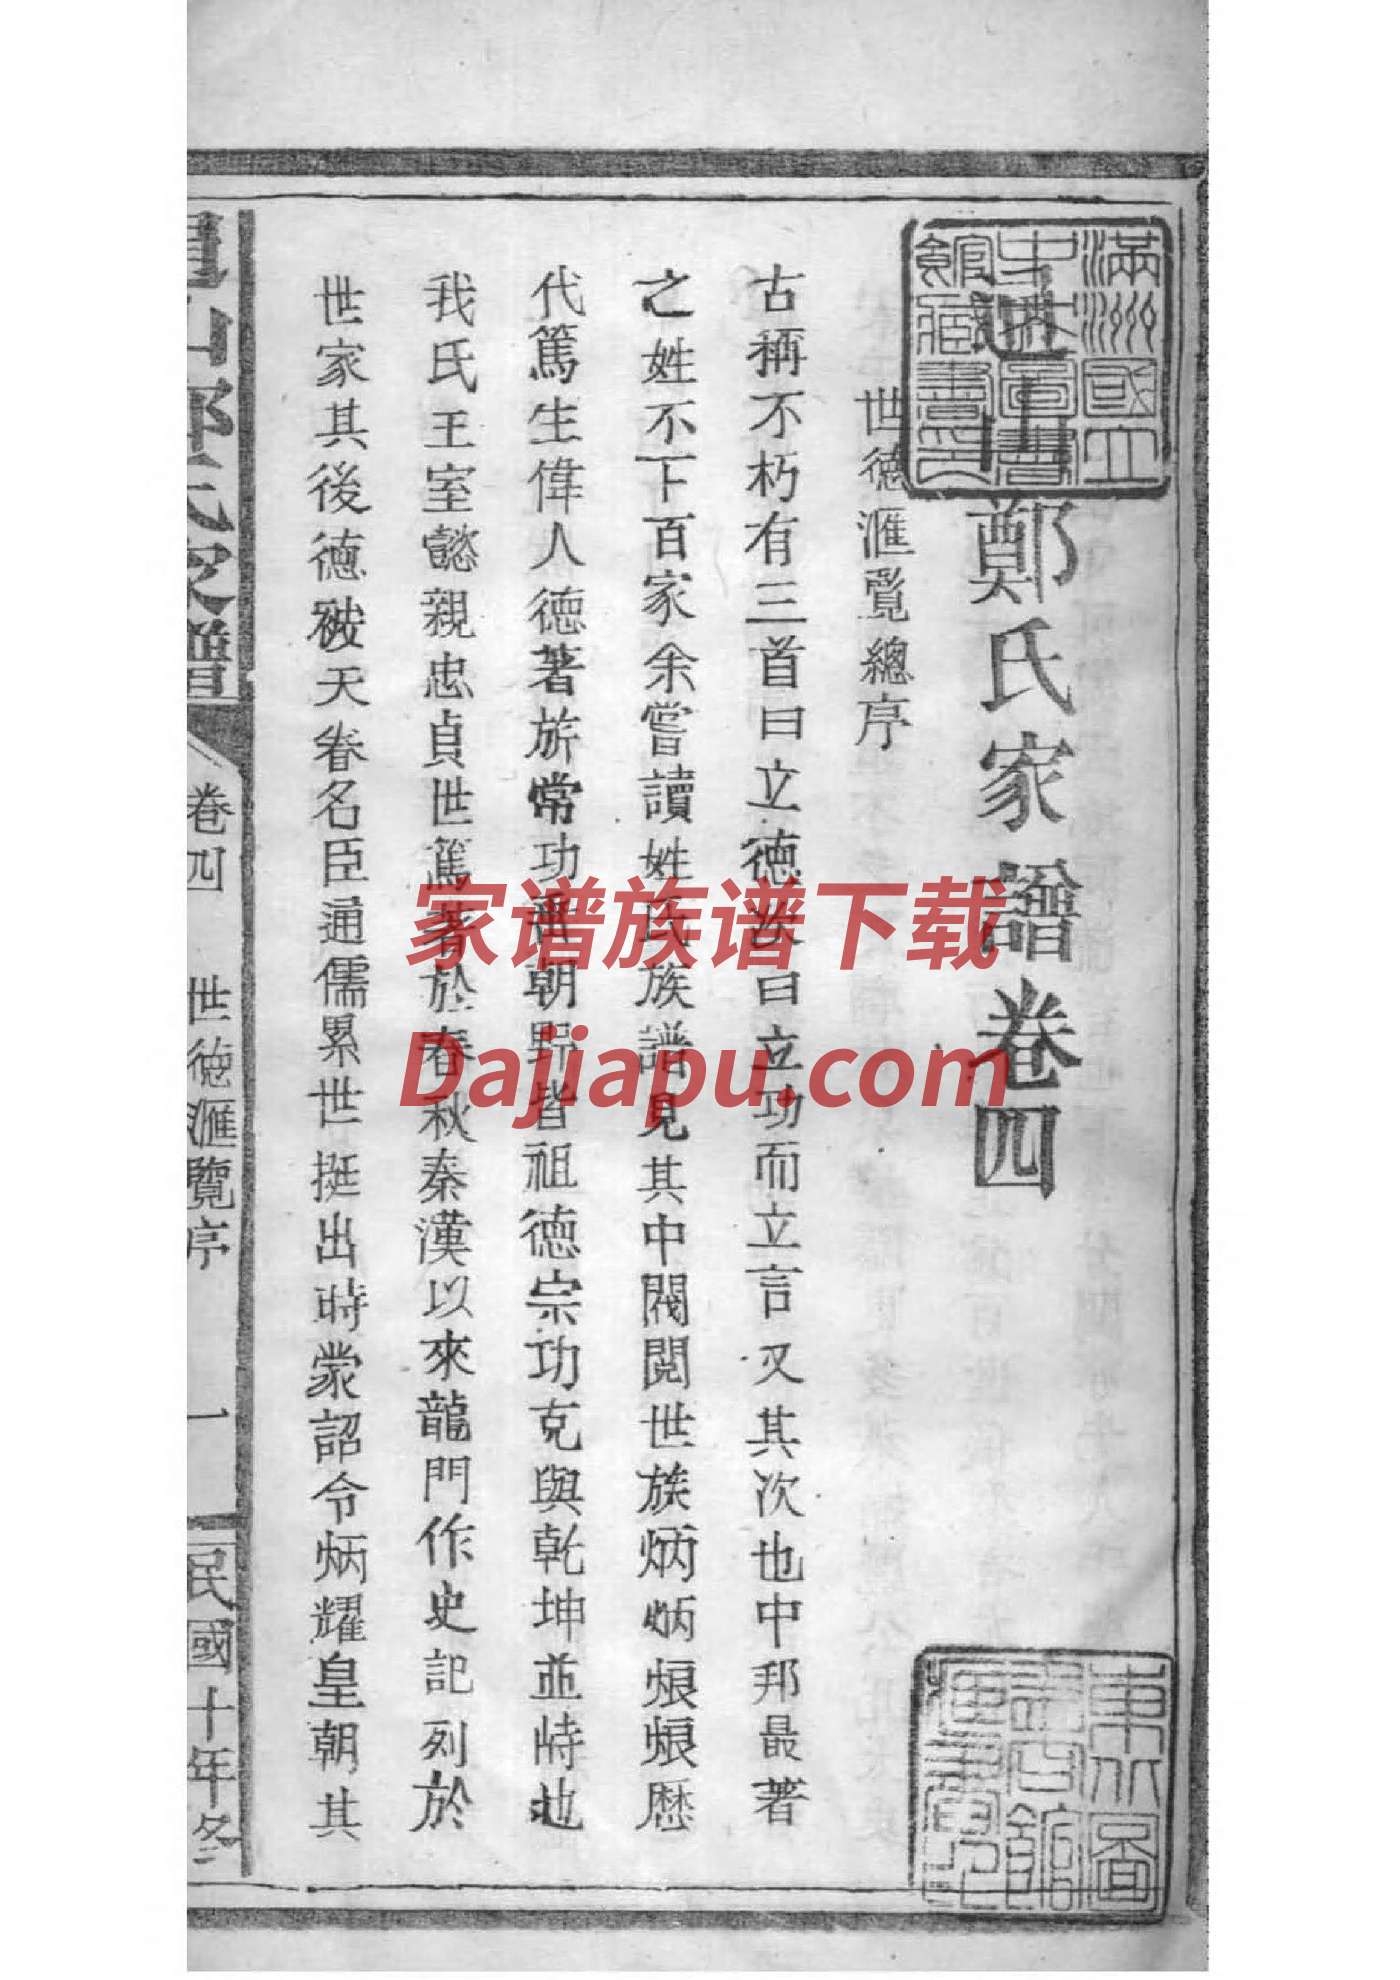 進山鄭氏家譜卷四
世德滙覽總序
古稱不朽有三首曰立德次曰立功而立言又其次也中邦最著
之姓不下百家余嘗讀姓氏族譜見其中閥閱世族炳炳烺烺歷
代篤生偉人德著旂常功通朝野皆祖德宗功克與乾坤並峙也
我氏王室懿親忠貞世篤著於春秋秦漢以來龍門作史記列於
世家其後德被天眷名臣通儒累世挺出時蒙詔令炳耀皇朝其
山鄭氏家譜
卷四
世德滙覽序
一
民國十年冬
滿洲國立
中央圖書
館藏書印
東北圖
書館
家谱族谱下载
Dajiapu.com